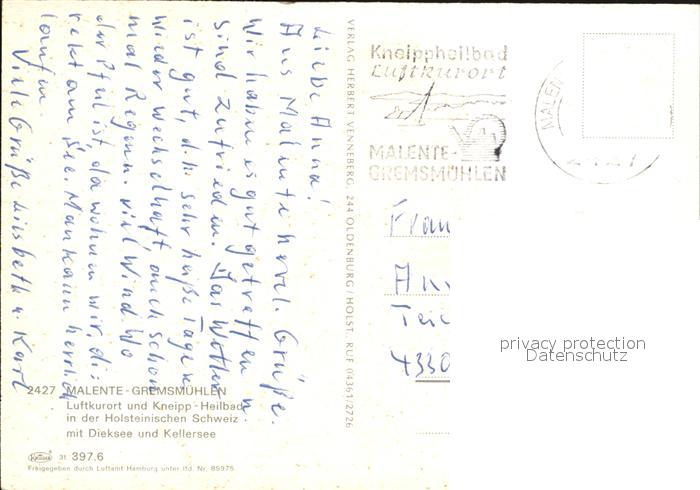 Liebe Anna!
Aus Malente herzl. Grüße.
Wir haben es gut getroffen u.
sind zufrieden. Das Wetter
ist gut, d.h. sehr heiße Tage u.
wieder wechselhaft, auch schon
mal Regen. viel Wind. Wo
der Pfeil ist, da wohnen wir, di-
rekt am See. Man kann herrlich
laufen.
Viele Grüße Lisbeth u. Karl
VERLAG HERBERT VENNEBERG, 244 OLDENBURG/HOLST. RUF 04361/2726
Kneippheilbad
Luftkurort
MALENTE-
GREMSMÜHLEN
MALEN
2427
Frau
4330
privacy protection
Datenschutz
2427 MALENTE-GREMSMÜHLEN
Luftkurort und Kneipp-Heilbad
in der Holsteinischen Schweiz
mit Dieksee und Kellersee
Krüger 31 397.6
Freigegeben durch Luftamt Hamburg unter lfd. Nr. 85975